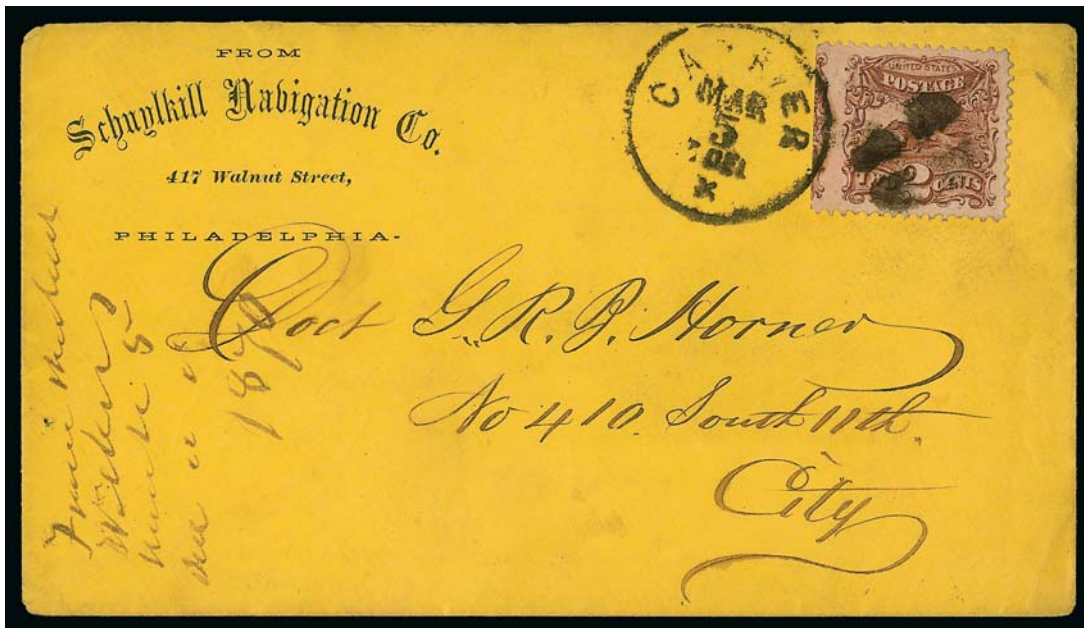 FROM
Schuylkill Navigation Co.
417 Walnut Street,
PHILADELPHIA-
CARRIER
MAR
5
DEL
UNITED STATES
POSTAGE
2 CENTS
Doct G. R. B. Horner
No 410. South 11th.
City
From
5
1870